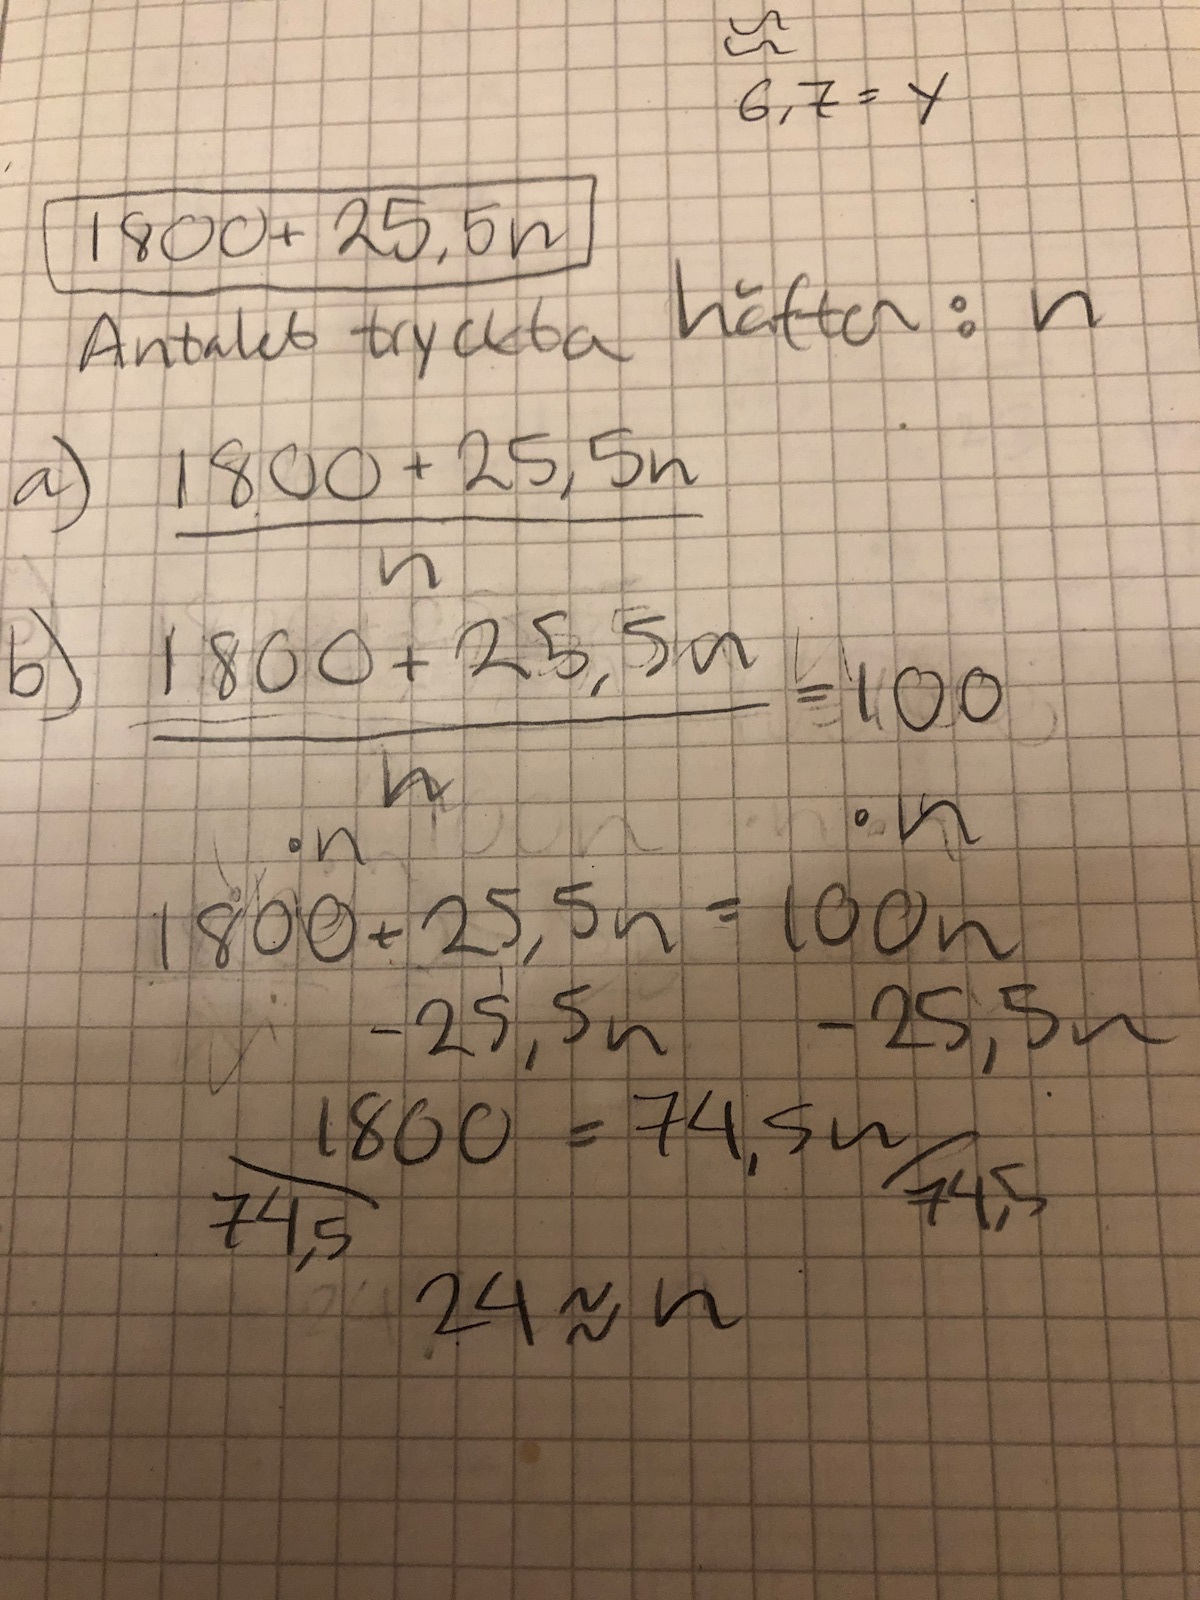 ≈
6,7 = y
1800 + 25,5n
Antalet tryckta häften : n
a) 1800 + 25,5n
n
b) 1800 + 25,5n = 100
n
·n ·n
1800 + 25,5n = 100n
-25,5n -25,5n
1800 = 74,5n
74,5 74,5
24 ≈ n